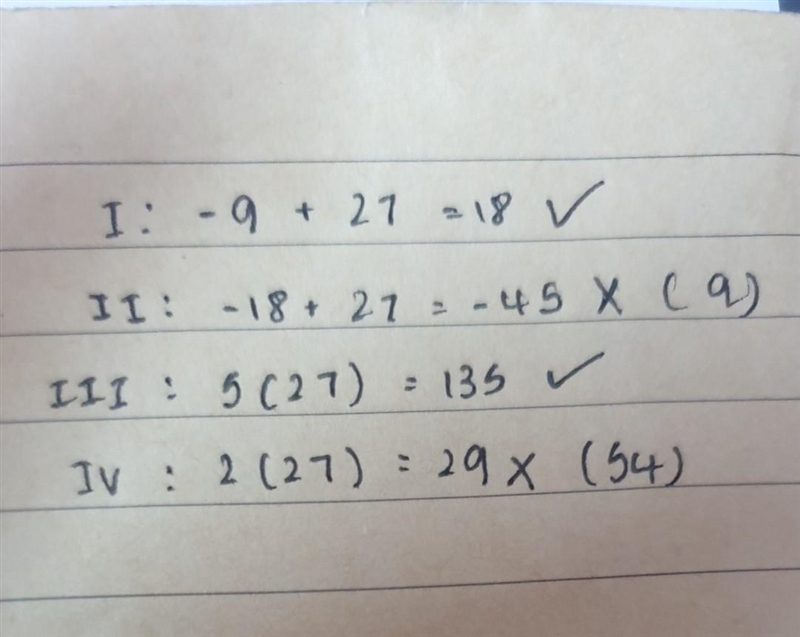 I: -9 + 27 = 18 ✓
II: -18 + 27 = -45 X (9)
III: 5(27) = 135 ✓
IV: 2(27) = 29 X (54)